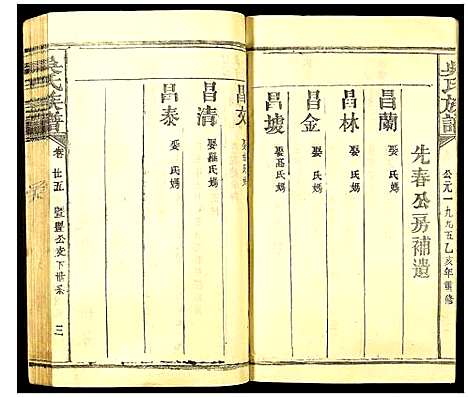 吳氏族譜
公元一九九五乙亥年重修
先春公房補遺
昌蘭
娶 氏媽
昌林
娶 氏媽
昌金
娶 氏媽
昌埈
娶高氏媽
昌
昌清
娶羅氏媽
昌泰
娶 氏媽
吳氏族譜
卷廿五
豐公支下世系
三